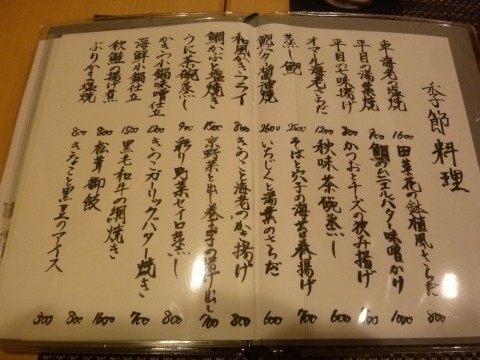 季節料理
車海老の塩焼 1600
平目の湯葉焼 900
平目の二味揚げ 800
オマール海老さらだ 1200
蒸し鮑 2500
鮑バター醤油焼 2600
和風かきフライ 800
鯛かぶと塩焼き 1500
うに茶碗蒸し 900
かきの小鍋味噌仕立 1200
海鮮小鍋仕立 1500
秋鮭の揚げ煮 800
ぶりかま塩焼 800
田菜花の鉢植風さらだ 800
鯛のムニエルバター味噌かけ 1000
かつおとチーズの挟み揚げ 800
秋味茶碗蒸し 600
そばと穴子の海苔巻揚げ 700
いちじくと湯葉のさらだ 600
きのこと海老つがり揚げ 800
京野菜と出し巻玉子の揚げ出し 700
彩り野菜セイロ蒸し 800
きのこガーリックバター焼き 700
黒毛和牛の網焼き 1600
松茸御飯 800
きなこと黒豆のアイス 300